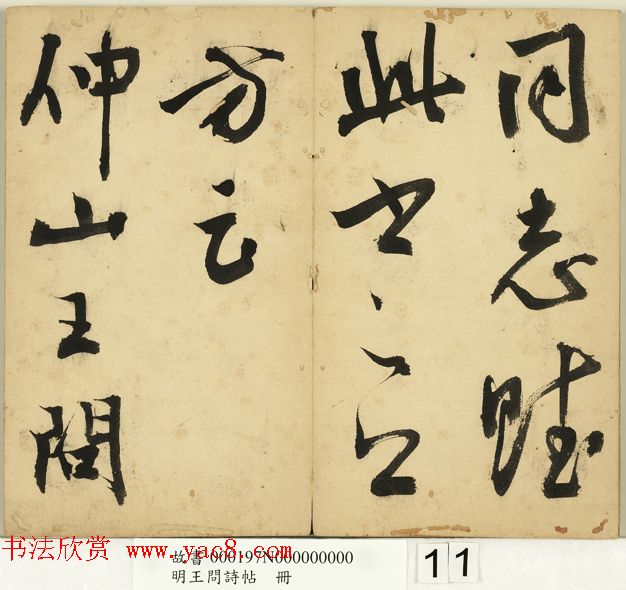 同志賦
此書以寄
方正
仲山王問
书法欣赏 www.yac8.com
故書 000197N000000000
明王問詩帖 冊
11